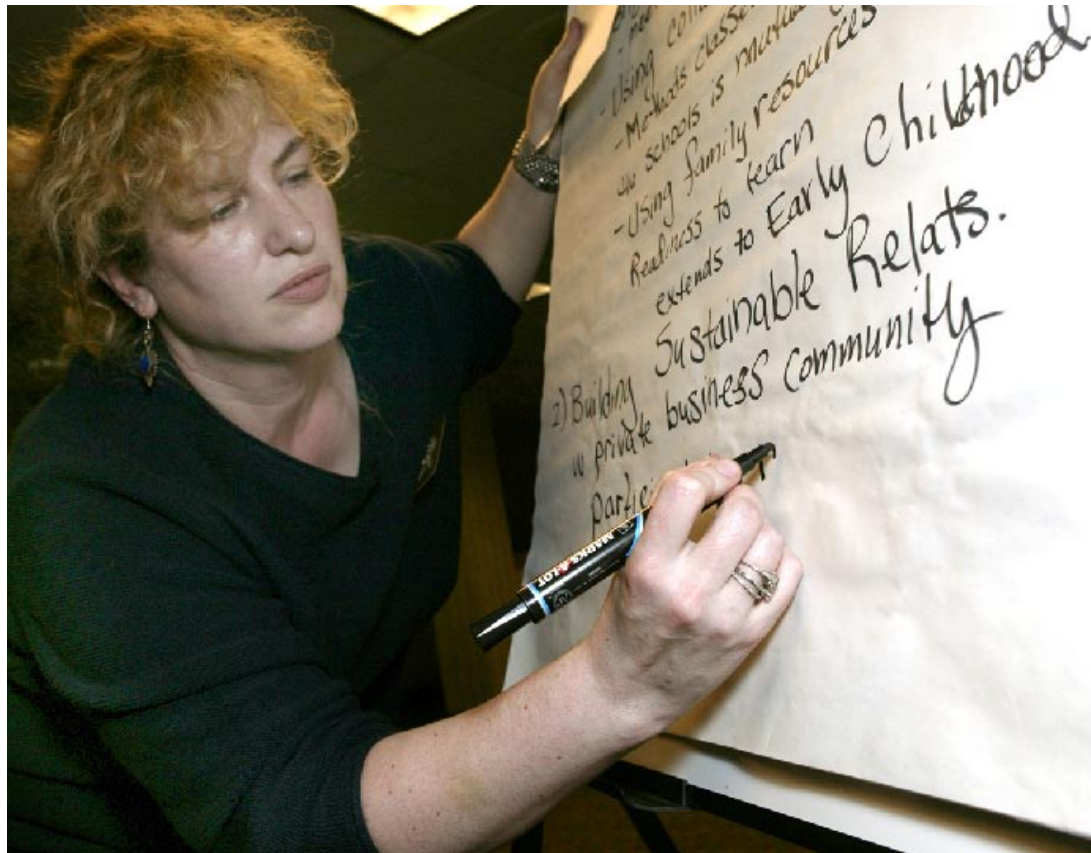 - Using
- Methods classes
in schools is
- Using family resources
Readiness to learn
extends to Early Childhood
2) Building Sustainable Relats.
w private business community
MARKS-A-LOT